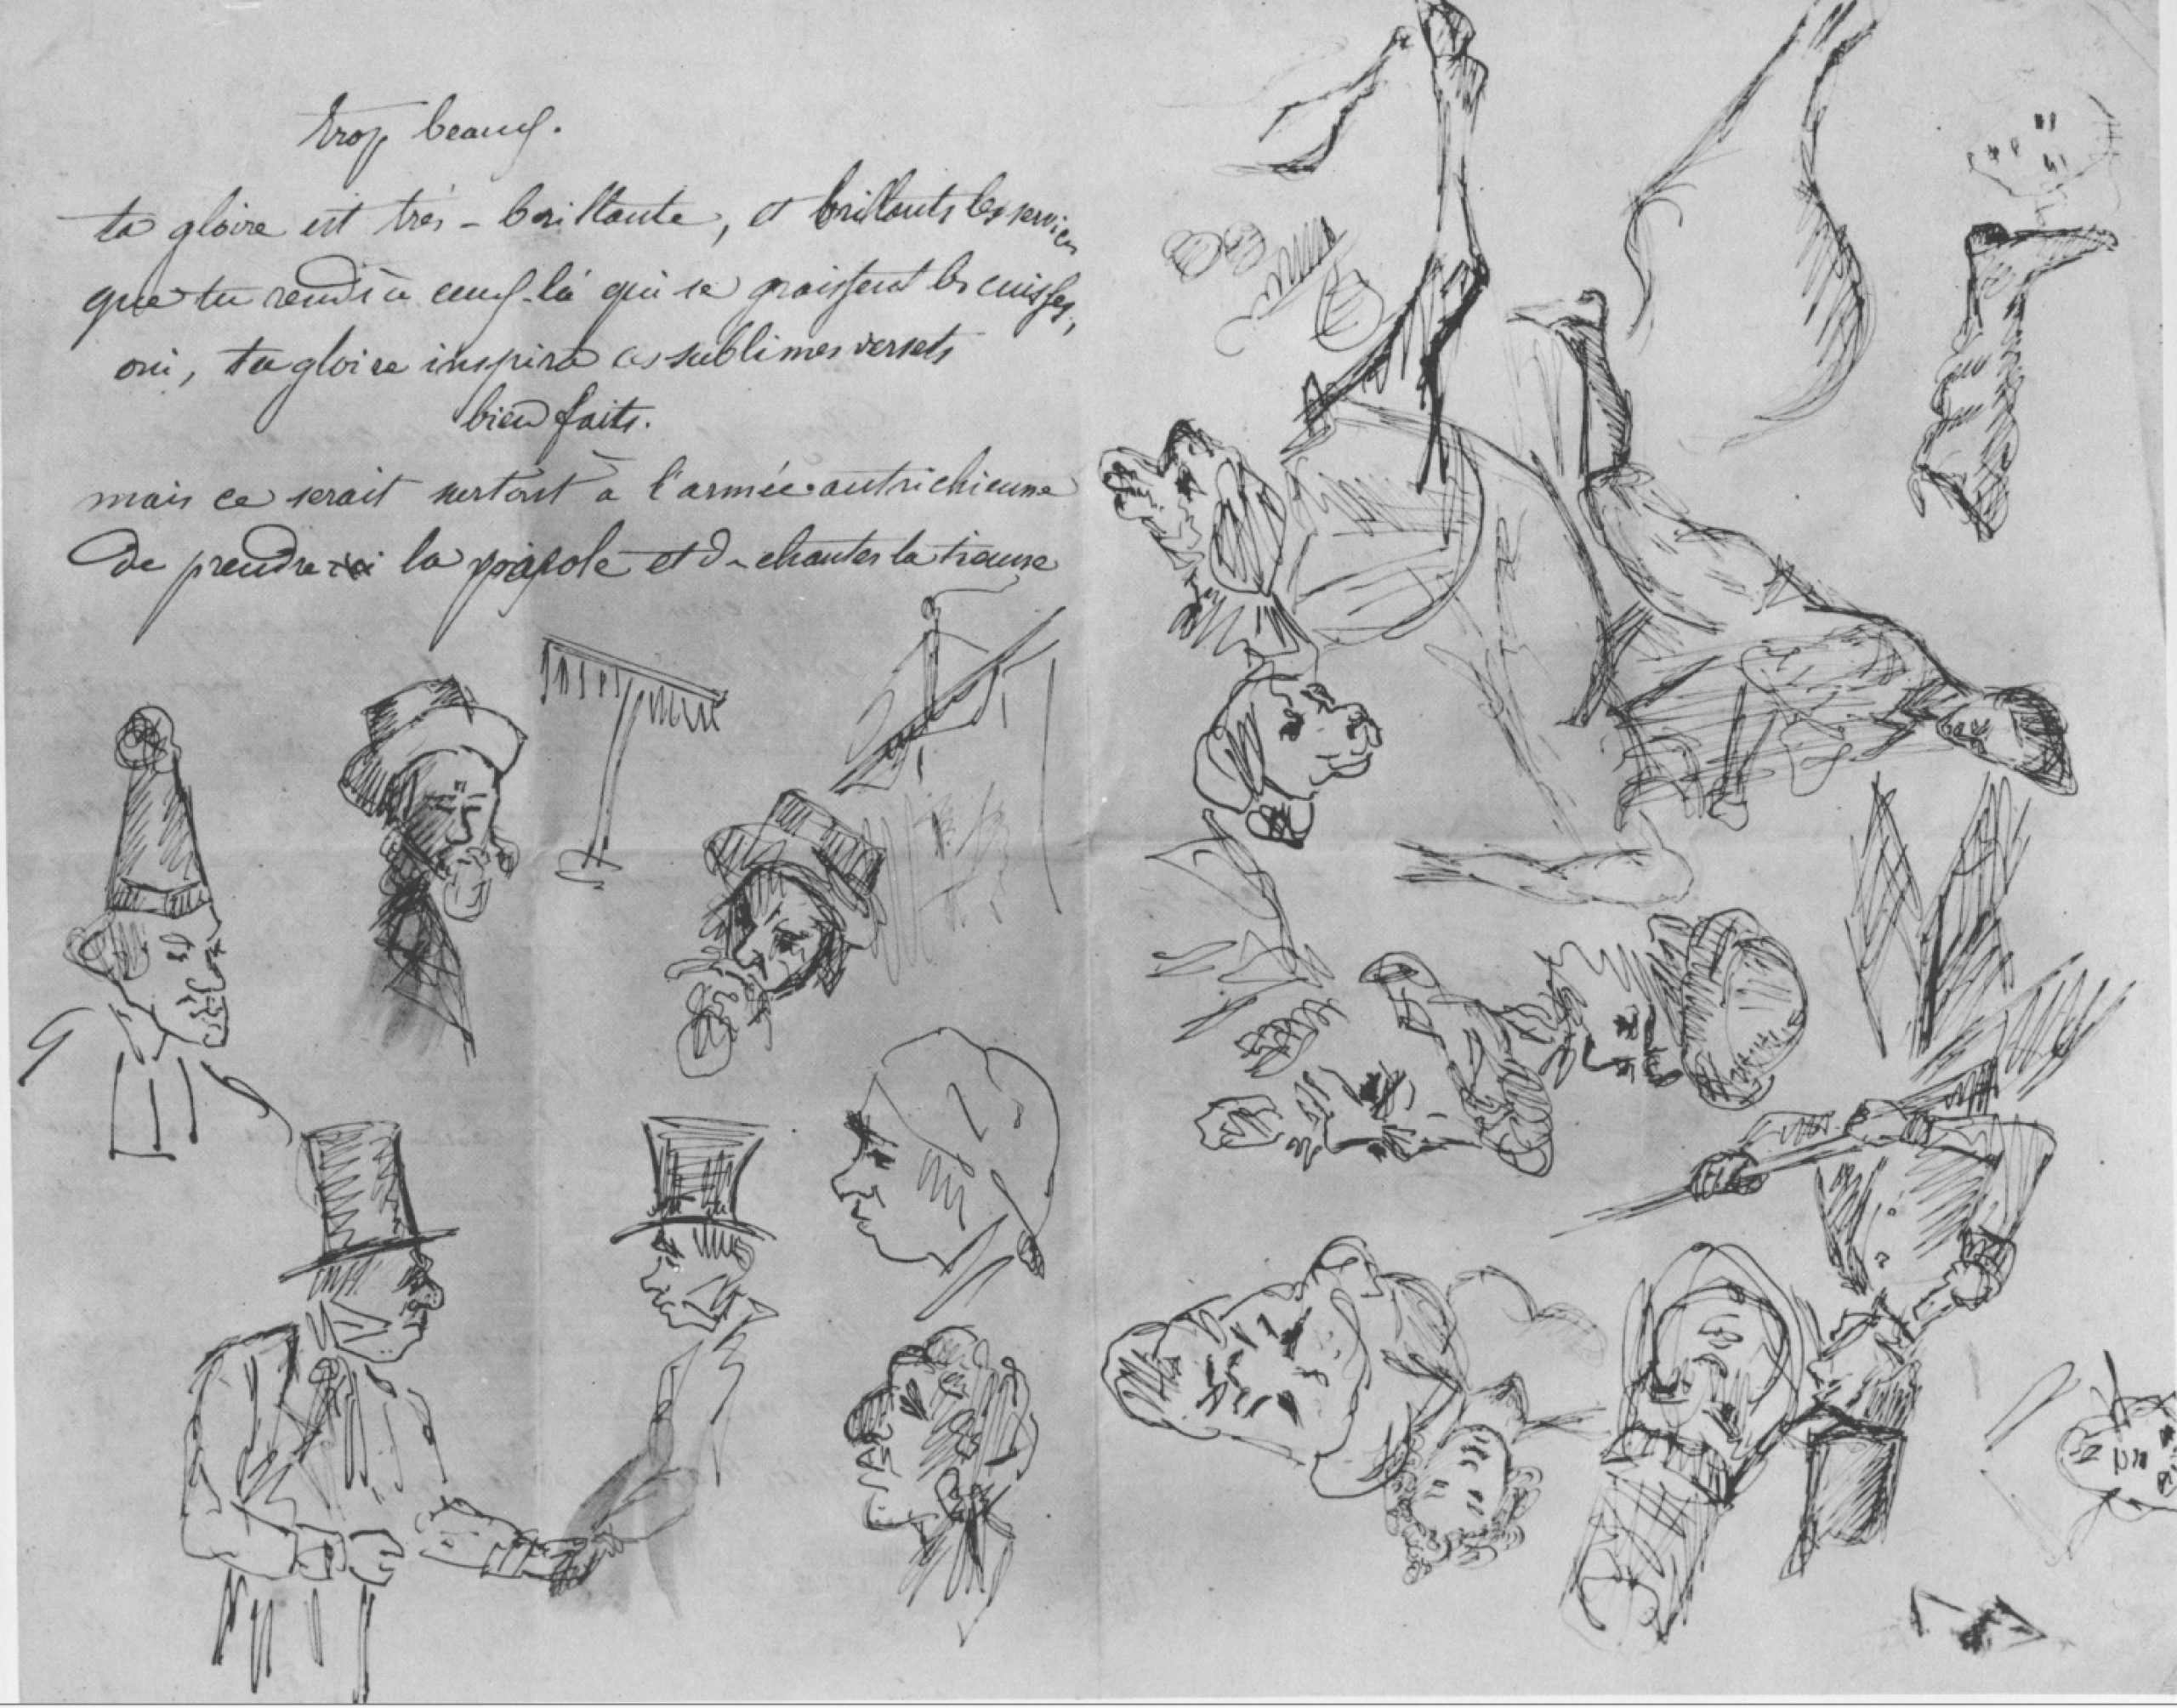 trop beaux.
ta gloire est très-brillante, et brillants les services
que tu rends à ceux-là qui se graissent les cuisses,
oui, ta gloire inspira ces sublimes versets
bien faits.
mais ce serait surtout à l'armée autrichienne
De prendre la parole et de chanter la tienne